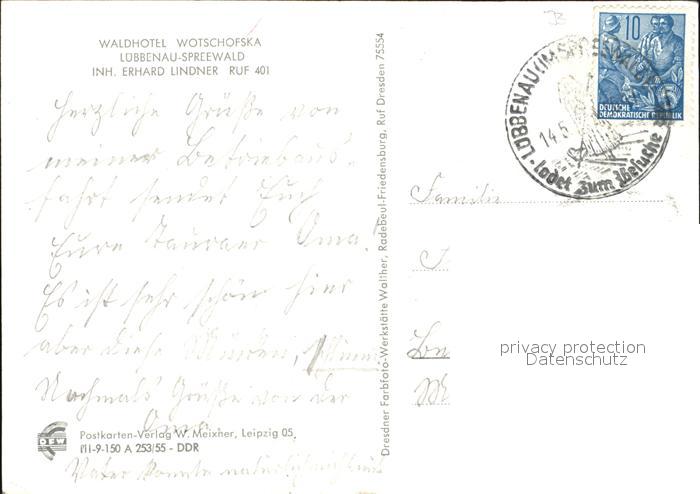 WALDHOTEL WOTSCHOFSKA
LÜBBENAU-SPREEWALD
INH. ERHARD LINDNER RUF 401
Herzliche Grüße von
meiner Betriebaus-
fahrt sendet Euch
Eure Tauraer Oma.
Es ist sehr schön hier
aber diese Mücken,
Nochmals Grüße von der
Oma
Postkarten-Verlag W. Meixner, Leipzig 05.
III-9-150 A 253/55 - DDR
Vater konnte natürlich nicht mit
Dresdner Farbfoto-Werkstätte Walther, Radebeul-Friedensburg, Ruf Dresden 75554
10
DEUTSCHE
DEMOKRATISCHE REPUBLIK
LÜBBENAU (IM SPREEWALD)
14.5
ladet zum Besuche
Familie
privacy protection
Datenschutz